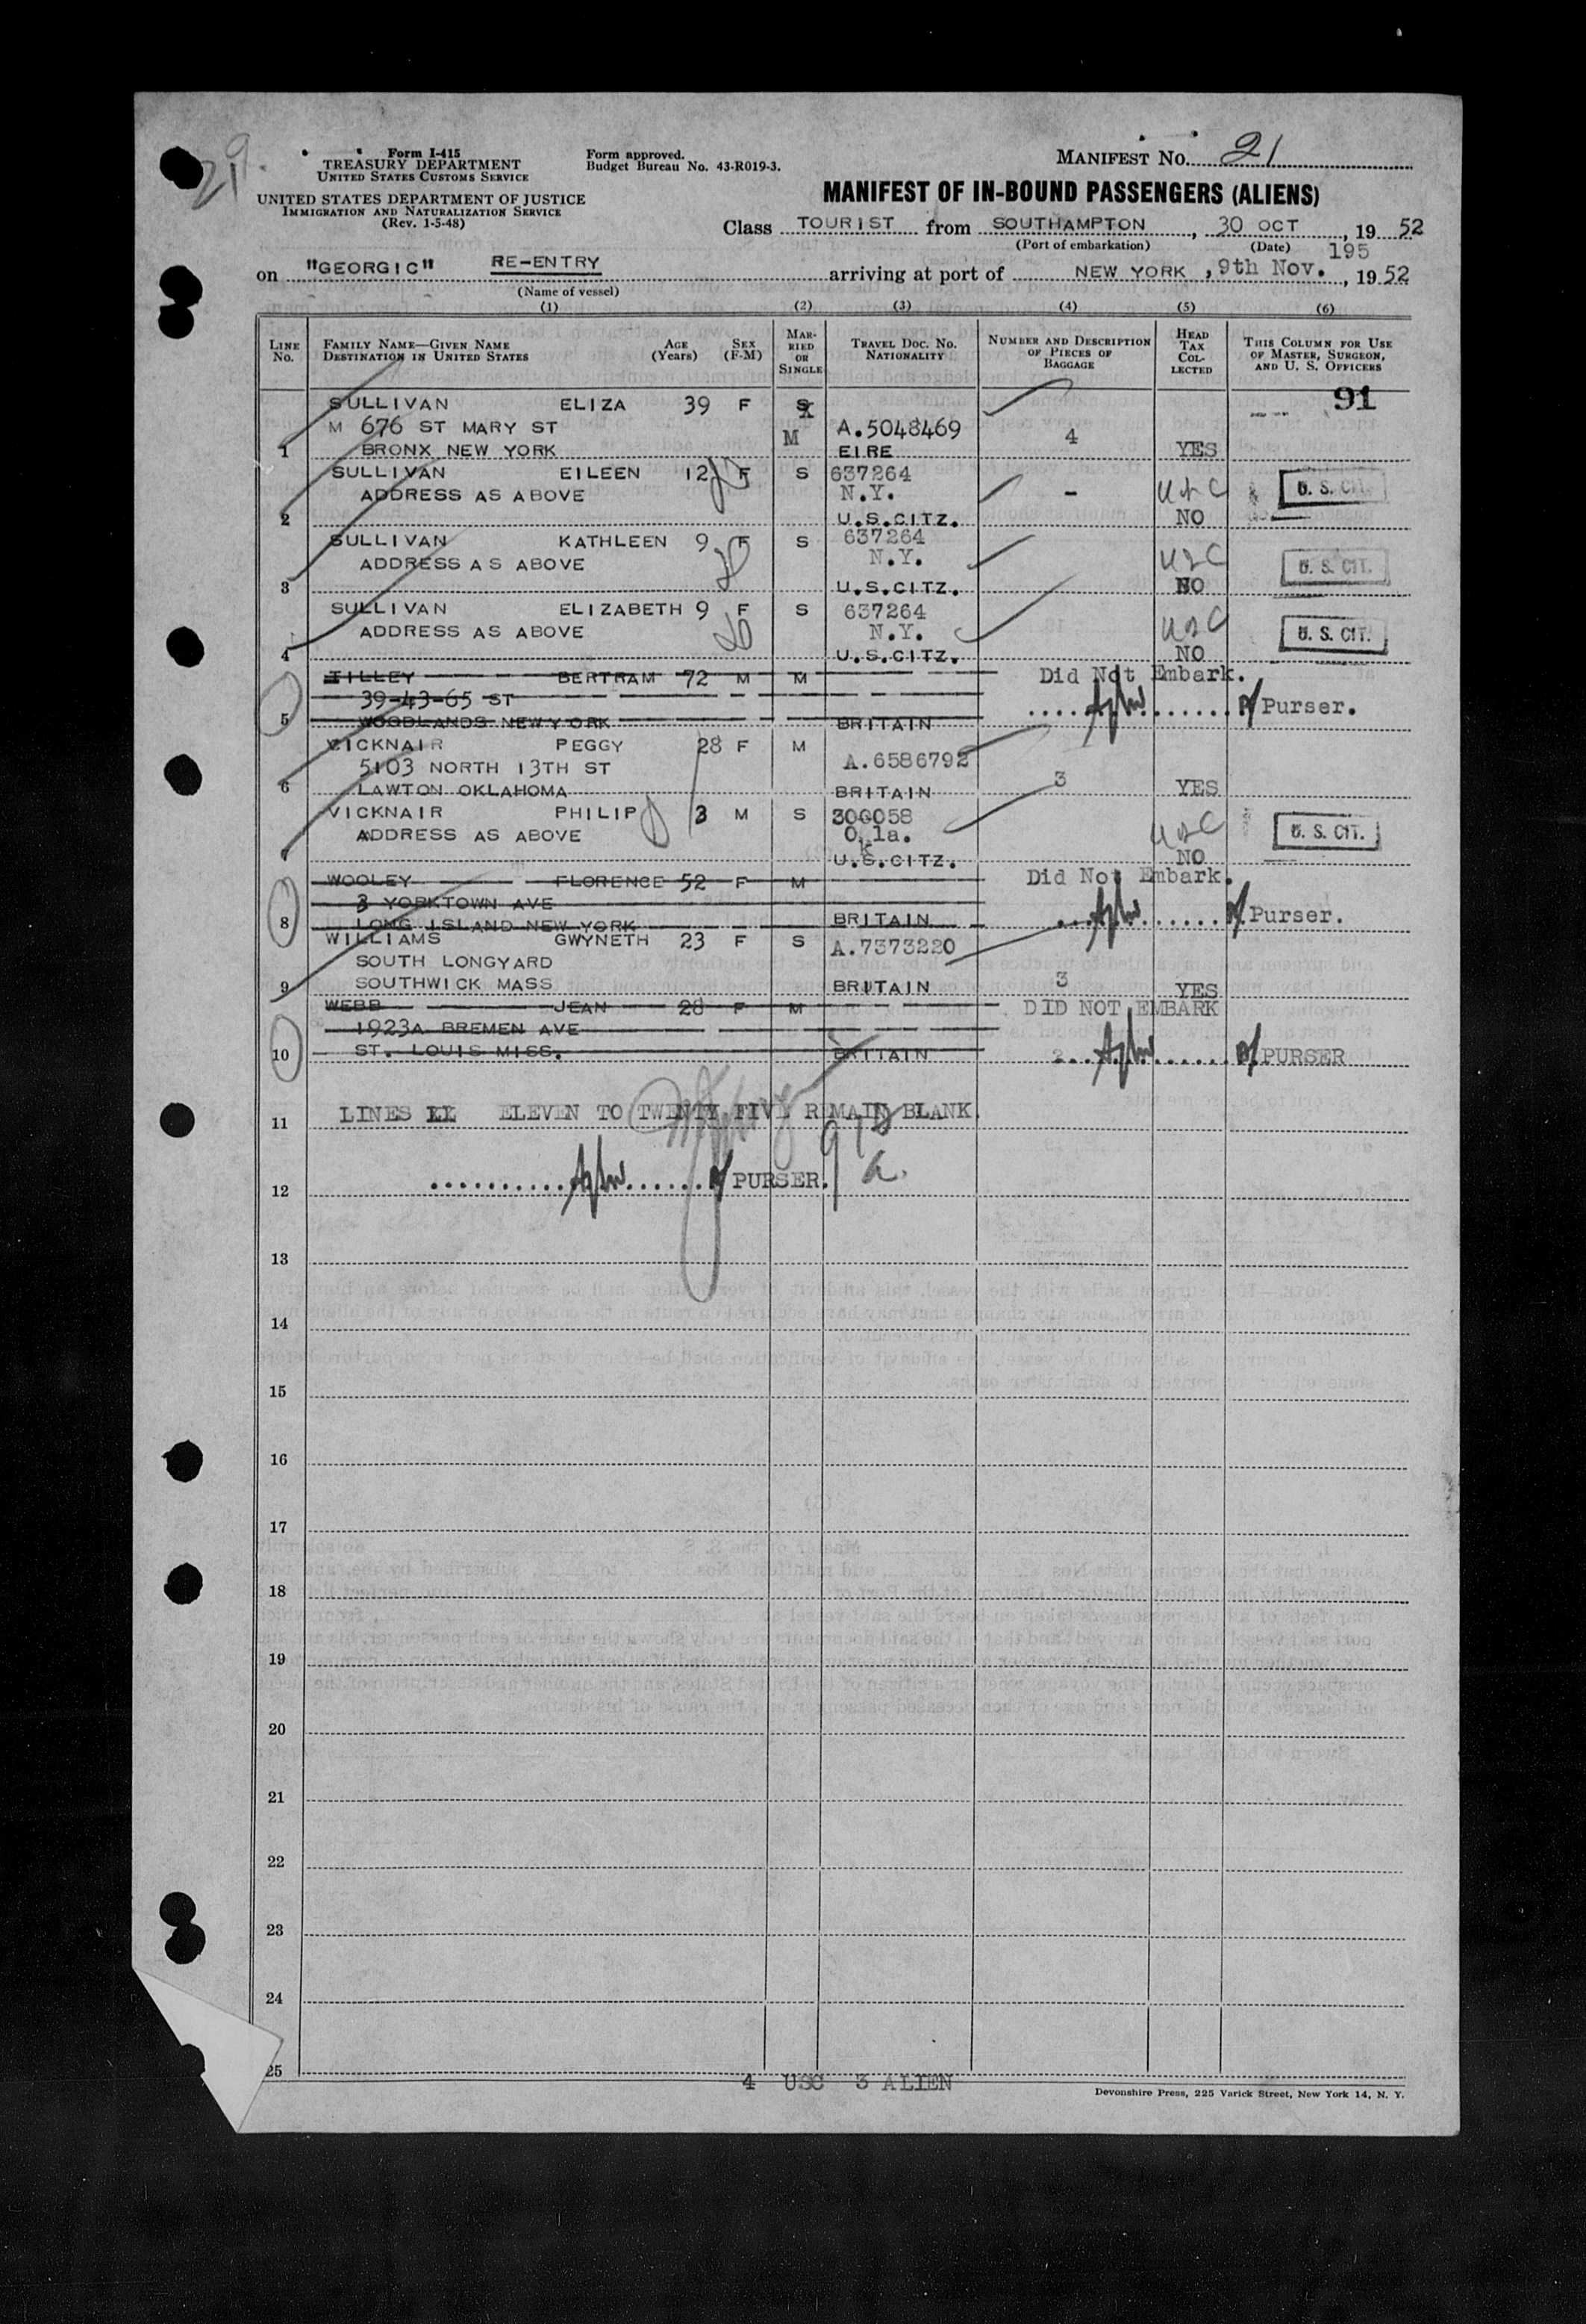 Form I-415
TREASURY DEPARTMENT
UNITED STATES CUSTOMS SERVICE
UNITED STATES DEPARTMENT OF JUSTICE
IMMIGRATION AND NATURALIZATION SERVICE
(Rev. 1-5-48)
Form approved.
Budget Bureau No. 43-R019-3.
MANIFEST No. 21
MANIFEST OF IN-BOUND PASSENGERS (ALIENS)
Class TOURIST from SOUTHAMPTON, 30 OCT, 1952
(Port of embarkation) (Date) 195
on "GEORGIC" RE-ENTRY arriving at port of NEW YORK, 9th Nov., 1952
(Name of vessel)
(1) (2) (3) (4) (5) (6)
LINE No. FAMILY NAME—GIVEN NAME DESTINATION IN UNITED STATES AGE (Years) SEX (F-M) MARRIED OR SINGLE TRAVEL DOC. No. NATIONALITY NUMBER AND DESCRIPTION OF PIECES OF BAGGAGE HEAD TAX COLLECTED THIS COLUMN FOR USE OF MASTER, SURGEON, AND U. S. OFFICERS
91
SULLIVAN ELIZA 39 F S
M 676 ST MARY ST M A.5048469 4
1 BRONX NEW YORK EIRE YES
SULLIVAN EILEEN 12 F S 637264
ADDRESS AS ABOVE N.Y. - USC U. S. CIT.
2 U.S.CITZ. NO
SULLIVAN KATHLEEN 9 F S 637264
ADDRESS AS ABOVE N.Y. USC U. S. CIT.
3 U.S.CITZ. NO
SULLIVAN ELIZABETH 9 F S 637264
ADDRESS AS ABOVE N.Y. USC U. S. CIT.
4 U.S.CITZ. NO
TILLEY BERTRAM 72 M M Did Not Embark.
39-43-65 ST Purser.
5 WOODLANDS NEW YORK BRITAIN
VICKNAIR PEGGY 28 F M
5103 NORTH 13TH ST A.6586792
6 LAWTON OKLAHOMA BRITAIN 3 YES
VICKNAIR PHILIP 3 M S 300058
ADDRESS AS ABOVE O.la. USC U. S. CIT.
k
7 U.S.CITZ. NO
WOOLEY FLORENCE 52 F M Did Not Embark.
3 YORKTOWN AVE
8 LONG ISLAND NEW YORK BRITAIN Purser.
WILLIAMS GWYNETH 23 F S A.7373220
SOUTH LONGYARD
9 SOUTHWICK MASS BRITAIN 3 YES
WEBB JEAN 28 F M DID NOT EMBARK
1923A BREMEN AVE
10 ST. LOUIS MISS. BRITAIN 2 PURSER
11 LINES ELEVEN TO TWENTY FIVE REMAIN BLANK.
12 PURSER.
13
14
15
16
17
18
19
20
21
22
23
24
25
4 USC 3 ALIEN
Devonshire Press, 225 Varick Street, New York 14, N. Y.